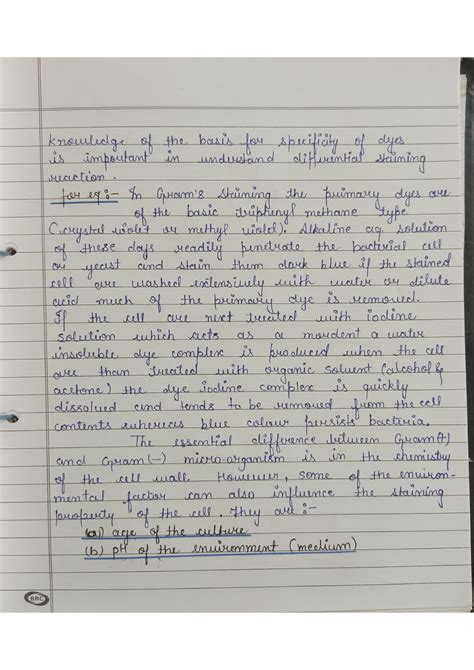 knowledge of the basis for specificity of dyes
is important in understand differential staining
reaction.
for eg:- In Gram's staining the primary dyes are
of the basic triphenyl methane type
C.crystal violet or methyl violet). Alkaline aq. solution
of these days readily penetrate the bacterial cell
or yeast and stain them dark blue if the stained
cell are washed extensively with water or dilute
acid much of the primary dye is removed.
If the cell are next treated with iodine
solution which acts as a mordent a water
insoluble dye complex is produced when the cell
are than treated with organic solvent (alcohol &
acetone) the dye iodine complex is quickly
dissolved and tends to be removed from the cell
contents whereas blue colour persists bacteria.
The essential difference between Gram(+)
and Gram(-) micro-organism is in the chemistry
of the cell wall. However, some of the environ-
mental factor can also influence the staining
property of the cell. They are :-
(a) age of the culture
(b) pH of the environment (medium)
BRC